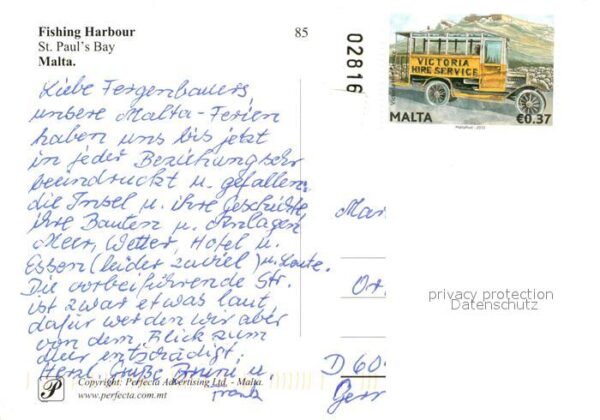 Fishing Harbour
St. Paul's Bay
Malta.
85
02816
VICTORIA
HIRE SERVICE
MALTA
€0.37
Liebe Fergenbauers,
unsere Malta-Ferien
haben uns bis jetzt
in jeder Beziehung sehr
beeindruckt u. gefallen:
die Insel u. ihre Geschichte,
ihre Bauten u. Anlagen
Meer, Wetter, Hotel u.
Essen (leider zuviel) u. Leute.
Die vorbeiführende Str.
ist zwar etwas laut,
dafür werden wir aber
von dem Blick zum
Meer entschädigt.
Herzl. Grüße Bruni u.
Frank
Mar
Or
D 60
Ger
privacy protection
Datenschutz
Copyright: Perfecta Advertising Ltd. - Malta.
www.perfecta.com.mt
P